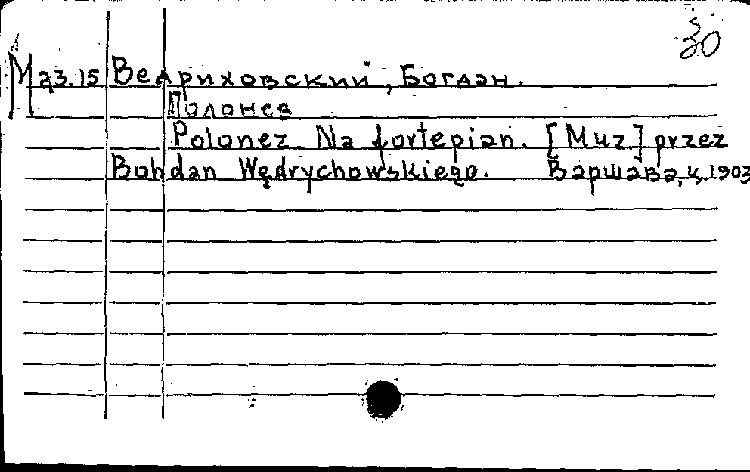 30
M 23.15 Ведриховский, Богдан.
Полонез
Polonez. Na fortepian. [Muz] przez
Bohdan Wędrychowskiego. Варшава, ц. 1903